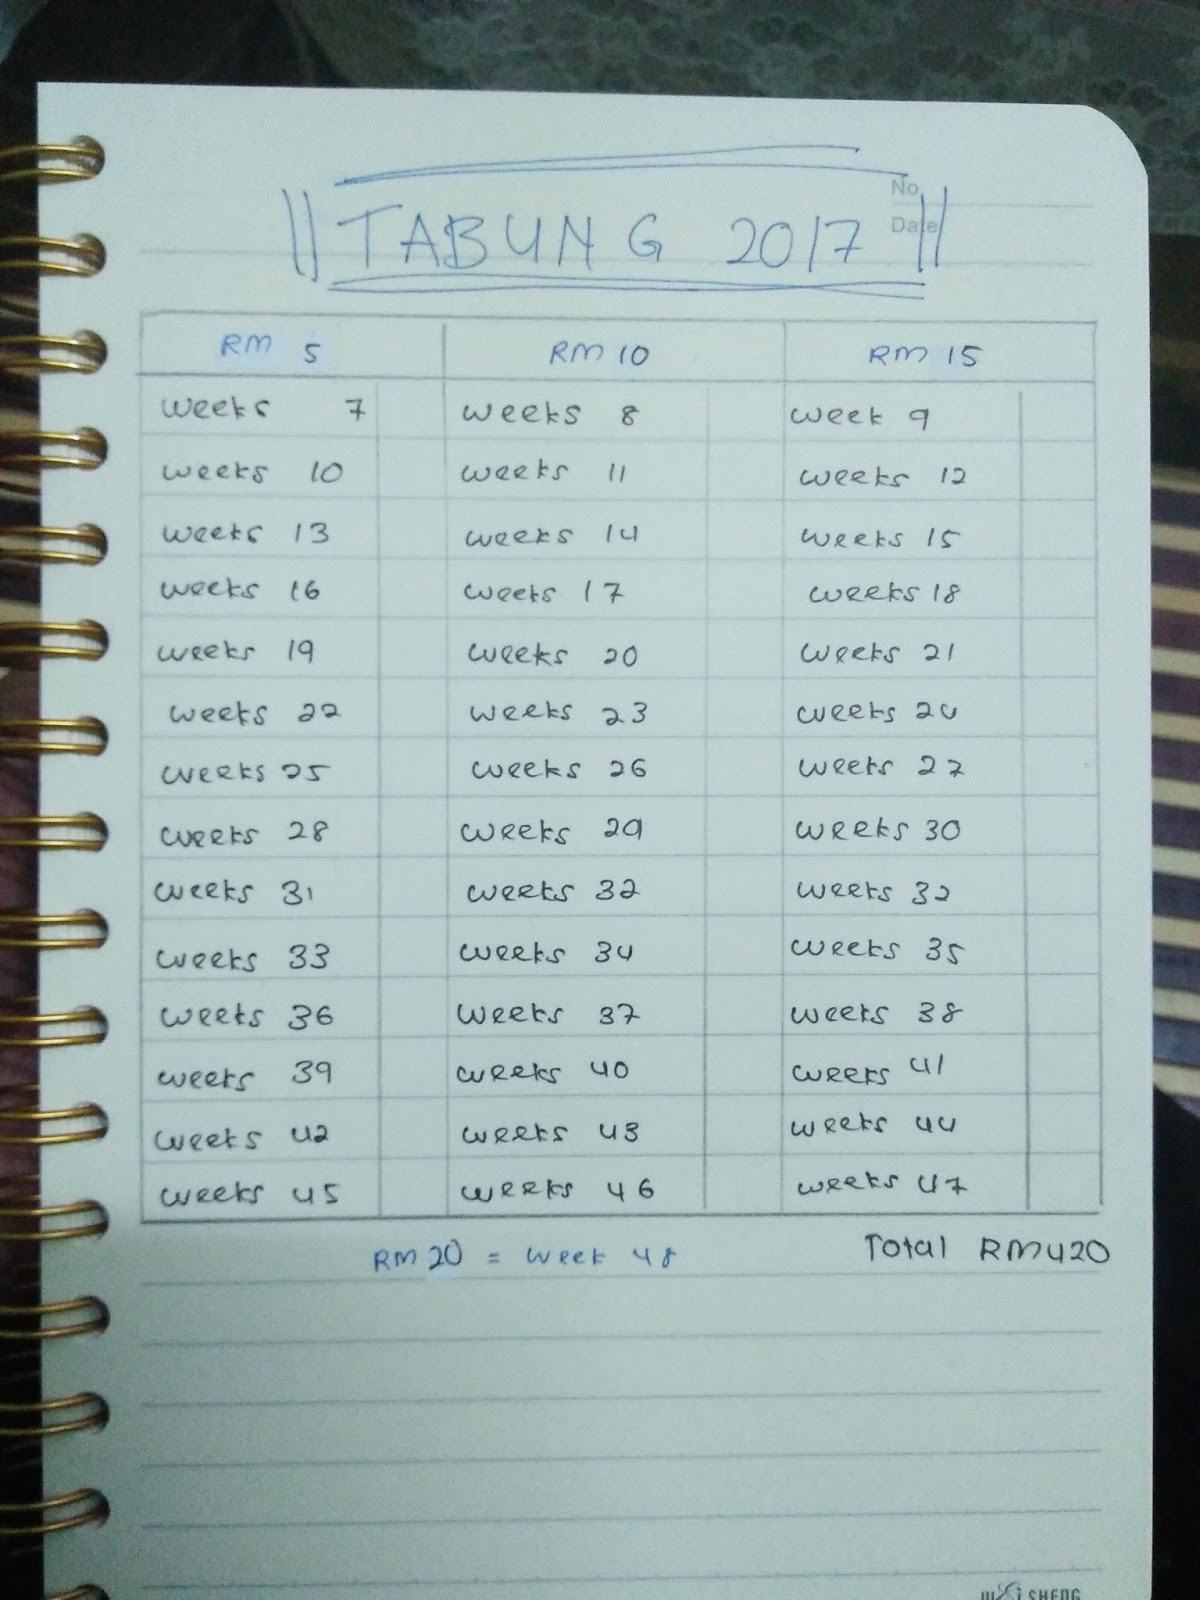 No
TABUNG 2017
Date
RM 5 RM 10 RM 15
weeks 7 weeks 8 week 9
weeks 10 weeks 11 weeks 12
weeks 13 weeks 14 weeks 15
weeks 16 weeks 17 weeks 18
weeks 19 weeks 20 weeks 21
weeks 22 weeks 23 weeks 24
weeks 25 weeks 26 weeks 27
weeks 28 weeks 29 weeks 30
weeks 31 weeks 32 weeks 32
weeks 33 weeks 34 weeks 35
weeks 36 weeks 37 weeks 38
weeks 39 weeks 40 weeks 41
weeks 42 weeks 43 weeks 44
weeks 45 weeks 46 weeks 47
RM 20 = week 48 Total RM420
SHENG